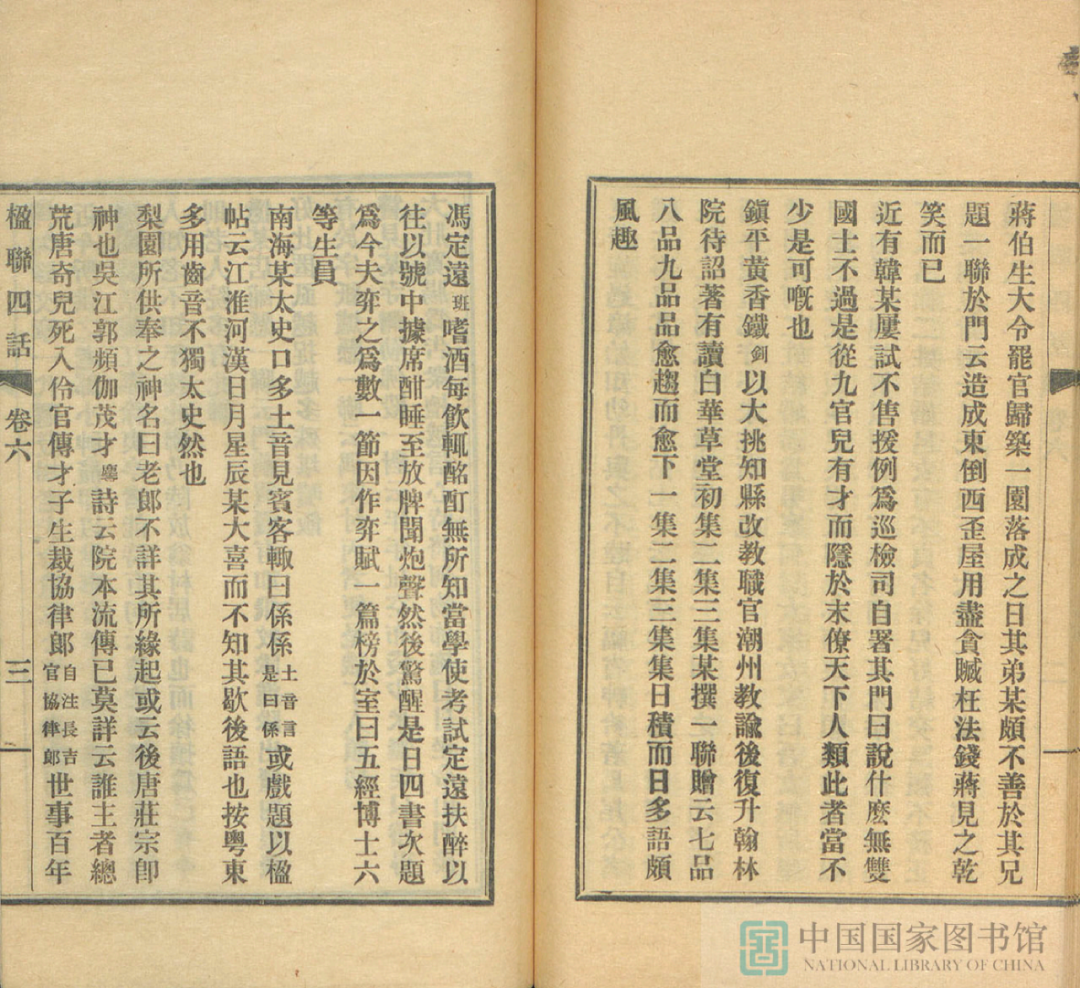 蔣伯生大令罷官歸築一園落成之日其弟某頗不善於其兄
題一聯於門云造成東倒西歪屋用盡貪贓枉法錢蔣見之乾
笑而已
近有韓某屢試不售援例爲巡檢司自署其門曰說什麽無雙
國士不過是從九官兒有才而隱於末僚天下人類此者當不
少是可嘅也
鎭平黃香鐵釗以大挑知縣改教職官潮州教諭後復升翰林
院待詔著有讀白華草堂初集二集三集某撰一聯贈云七品
八品九品品愈趨而愈下一集二集三集集日積而日多語頗
風趣
馮定遠班嗜酒每飲輒酩酊無所知當學使考試定遠扶醉以
往以號中據席酣睡至放牌聞炮聲然後驚醒是日四書次題
爲今夫弈之爲數一節因作弈賦一篇榜於室曰五經博士六
等生員
南海某太史口多土音見賓客輙曰係係土音言是曰係或戲題以楹
帖云江淮河漢日月星辰某大喜而不知其歇後語也按粵東
多用齒音不獨太史然也
梨園所供奉之神名曰老郎不詳其所緣起或云後唐莊宗卽
神也吳江郭頻伽茂才麐詩云院本流傳已莫詳云誰主者總
荒唐奇兒死入伶官傳才子生裁協律郞自注長吉官協律郞世事百年
楹聯四話 卷六 三一
中国国家图书馆
NATIONAL LIBRARY OF CHINA